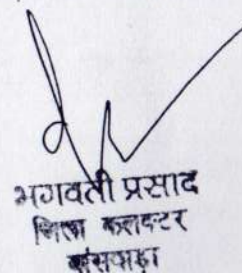 भगवती प्रसाद
जिला कलक्टर
बांसवाड़ा